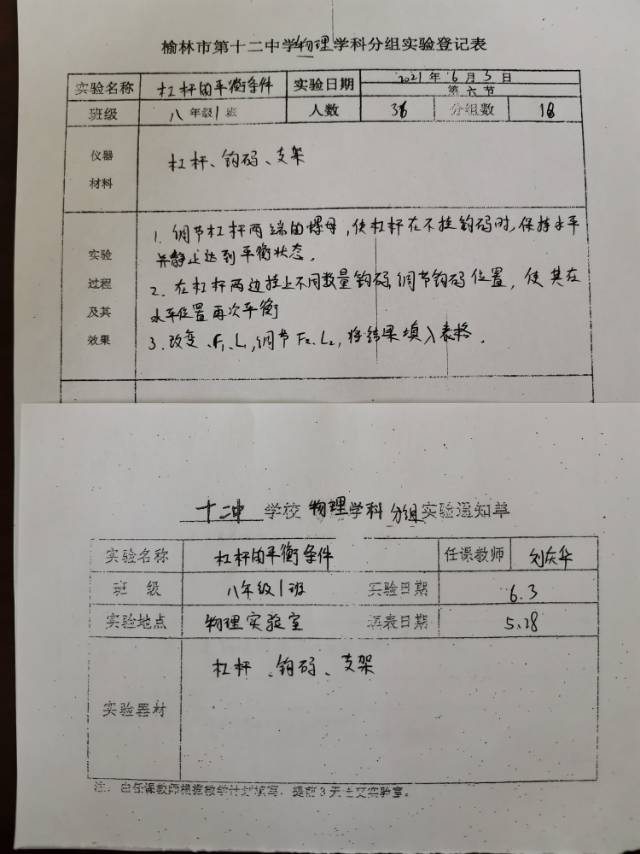 榆林市第十二中学物理学科分组实验登记表
实验名称 杠杆的平衡条件 实验日期 2021年6月3日
第六节
班级 八年级1班 人数 36 分组数 18
仪器
材料
杠杆、钩码、支架
实验
过程
及其
效果
1. 调节杠杆两端的螺母,使杠杆在不挂钩码时,保持水平
并静止达到平衡状态.
2. 在杠杆两边挂上不同数量钩码,调节钩码位置,使其在
水平位置再次平衡
3. 改变F₁、L₁,调节F₂、L₂,将结果填入表格.
十二中 学校 物理学科 分组实验通知单
实验名称 杠杆的平衡条件 任课教师 刘庆华
班 级 八年级1班 实验日期 6.3
实验地点 物理实验室 填表日期 5.28
实验器材 杠杆、钩码、支架
注:由任课教师根据教学计划填写,提前3天送交实验室。